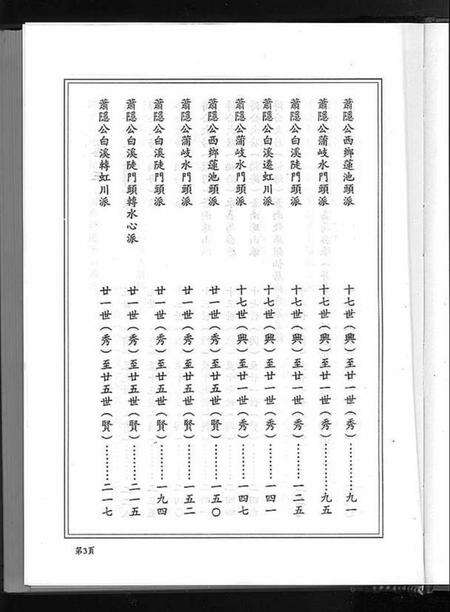 蕭隱公西鄉蓮池頭派 十七世(興)至廿一世(秀)………九一
蕭隱公蒲岐水門頭派 十七世(興)至廿一世(秀)………九五
蕭隱公白溪陡門頭派 十七世(興)至廿一世(秀)………一二五
蕭隱公白溪遶虹川派 十七世(興)至廿一世(秀)………一四一
蕭隱公蒲岐水門頭派 十七世(興)至廿一世(秀)………一四七
蕭隱公西鄉蓮池頭派 廿一世(秀)至廿五世(賢)………一五〇
蕭隱公蒲岐水門頭派 廿一世(秀)至廿五世(賢)………一五二
蕭隱公白溪陡門頭派 廿一世(秀)至廿五世(賢)………一九四
蕭隱公白溪陡門頭轉水心派 廿一世(秀)至廿五世(賢)………二一五
蕭隱公白溪轉虹川派 廿一世(秀)至廿五世(賢)………二一七
第3頁